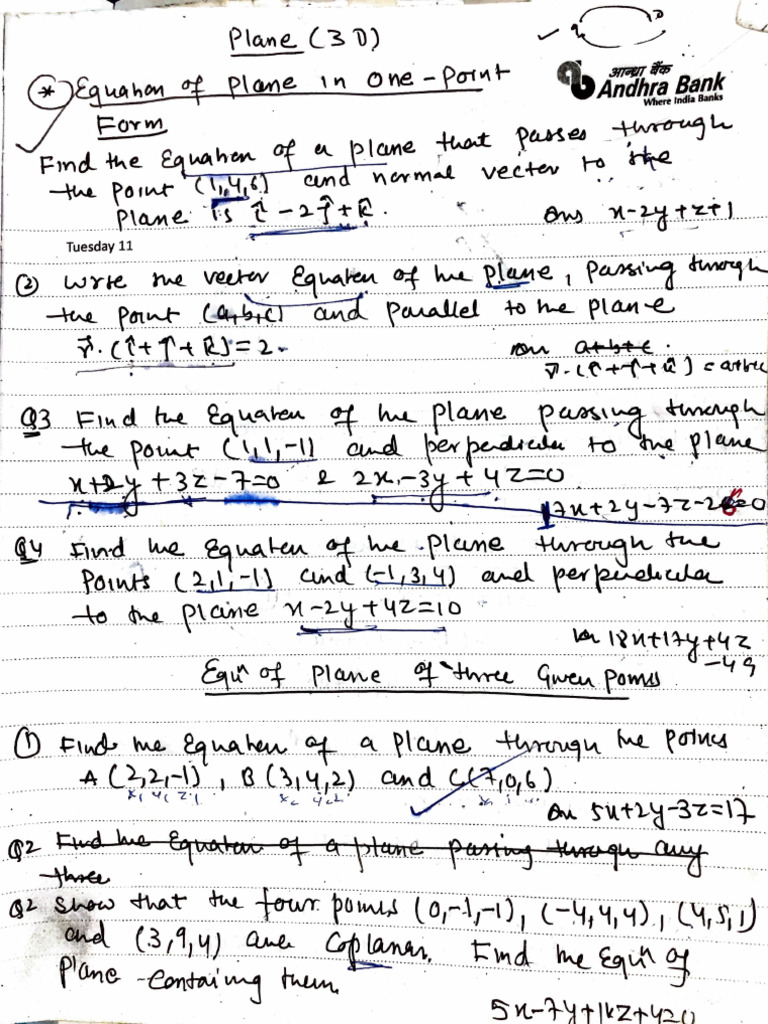 Plane (3D)
* Equation of Plane in One-Point
Form
आन्ध्रा बैंक
Andhra Bank
Where India Banks
Find the Equation of a plane that passes through
the point (1,4,6) and normal vector to the
plane is î - 2ĵ + k̂.
Ans x-2y+z+1
Tuesday 11
② Write the vector Equation of the plane, passing through
the point (a,b,c) and parallel to the plane
r⃗.(î+ĵ+k̂)=2.
a+b+c.
r⃗.(î+ĵ+k̂)=a+b+c
Q3 Find the Equation of the plane passing through
the point (1,1,-1) and perpendicular to the plane
x+2y+3z-7=0 & 2x-3y+4z=0
17x+2y-7z-26=0
Q4 Find the Equation of the plane through the
points (2,1,-1) and (-1,3,4) and perpendicular
to the plane x-2y+4z=10
18x+17y+4z
-49
Equn of Plane of three Given Points
① Find the Equation of a plane through the points
A(2,2,-1), B(3,4,2) and C(7,0,6)
x, y, z,
Ans 5x+2y-3z=17
Q2 Find the Equation of a plane passing through any
three
Q2 Show that the four points (0,-1,-1), (-4,4,4), (4,5,1)
and (3,9,4) are Coplanar. Find the Equn of
Plane containing them.